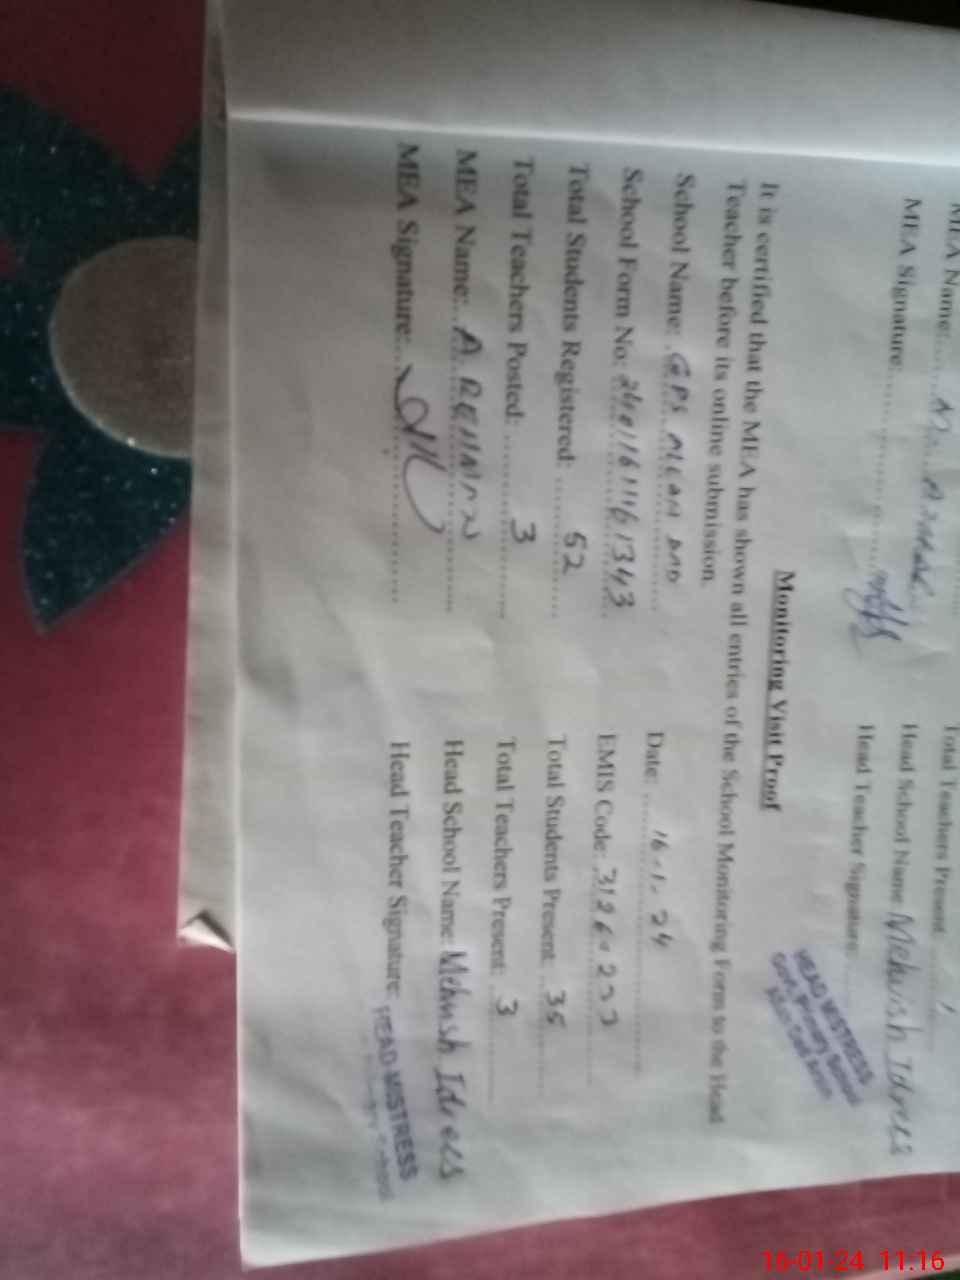 MEA Name: M. Arshad
Total Teachers Present
MEA Signature:
Head School Name Mehwish Idrees
Head Teacher Signature
HEAD MISTRESS
Govt. Primary School
Monitoring Visit Proof
It is certified that the MEA has shown all entries of the School Monitoring Form to the Head
Teacher before its online submission.
School Name: GPS Mian
Date: 16-1-24
School Form No:
EMIS Code:
Total Students Registered: 52
Total Students Present: 35
Total Teachers Posted: 3
Total Teachers Present: 3
MEA Name: A REHMAN
Head School Name: Mehwish Idrees
MEA Signature:
Head Teacher Signature:
HEAD MISTRESS
16-01-24 11:16